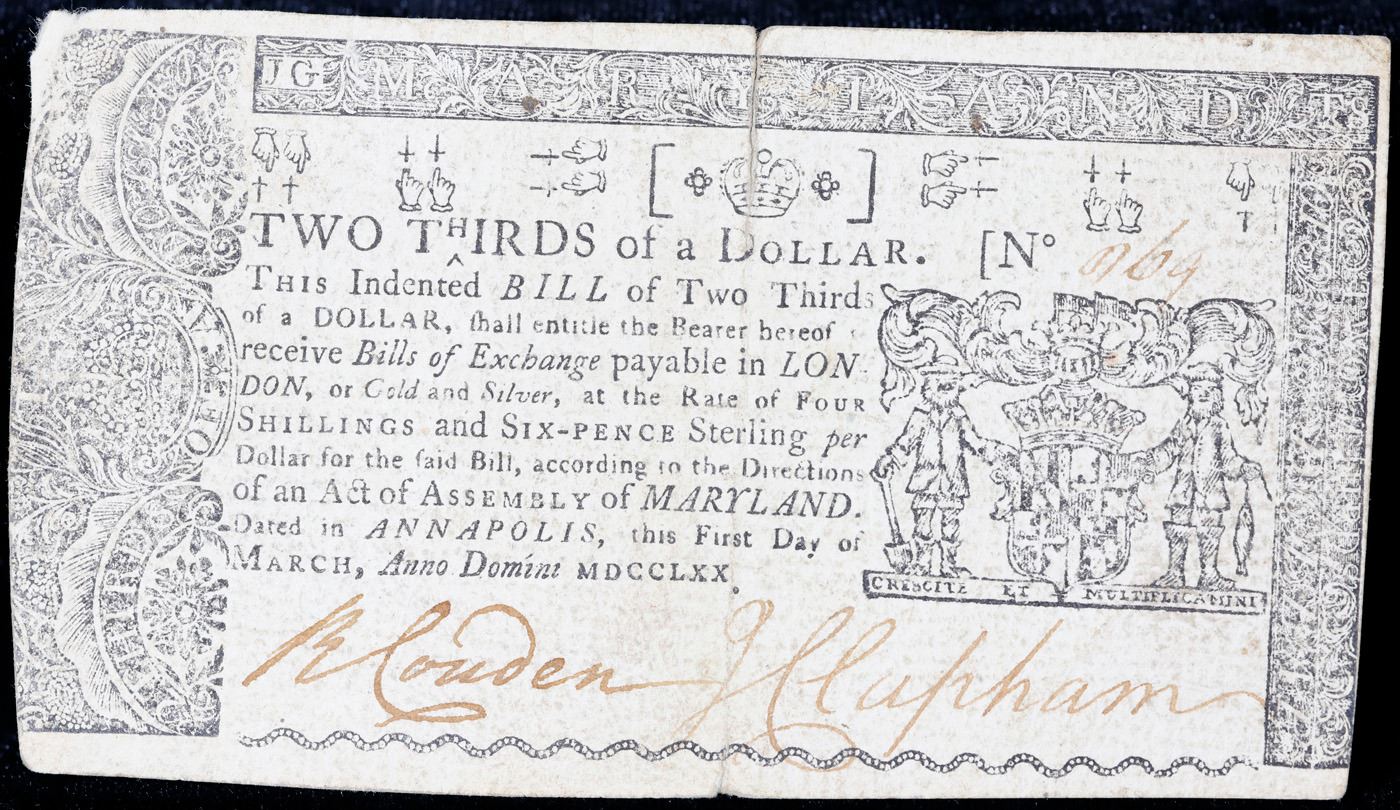 JG MARYLAND TS
TWO THIRDS of a DOLLAR. [No
THIS Indented BILL of Two Thirds
of a DOLLAR, ſhall entitle the Bearer hereof
receive Bills of Exchange payable in LON-
DON, or Gold and Silver, at the Rate of FOUR
SHILLINGS and SIX-PENCE Sterling per
Dollar for the ſaid Bill, according to the Directions
of an Act of ASSEMBLY of MARYLAND.
Dated in ANNAPOLIS, this First Day of
MARCH, Anno Domini MDCCLXX.
CRESCITE ET MULTIPLICAMINI
R Couden J Clapham